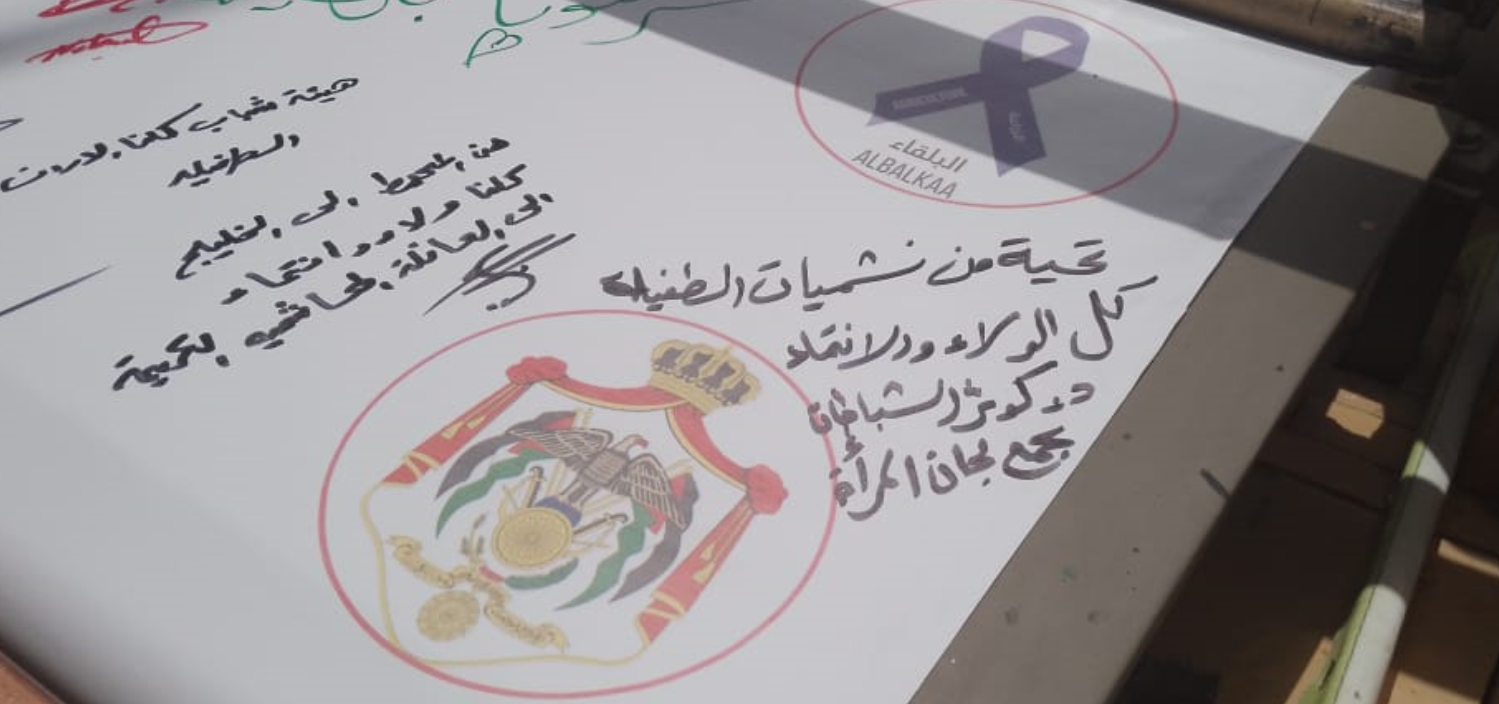 هيئة شباب كلنا الاردن
الطفيله
من المحيط الى الخليج
كلنا ولاء وانتماء
الى العائلة الهاشميه الكريمة
AGRICULTURE
البلقاء
ALBALKAA
تحية من نشميات الطفيله
كل الولاء والانتماء
د. كوثر الشباطات
تجمع لجان المرأة